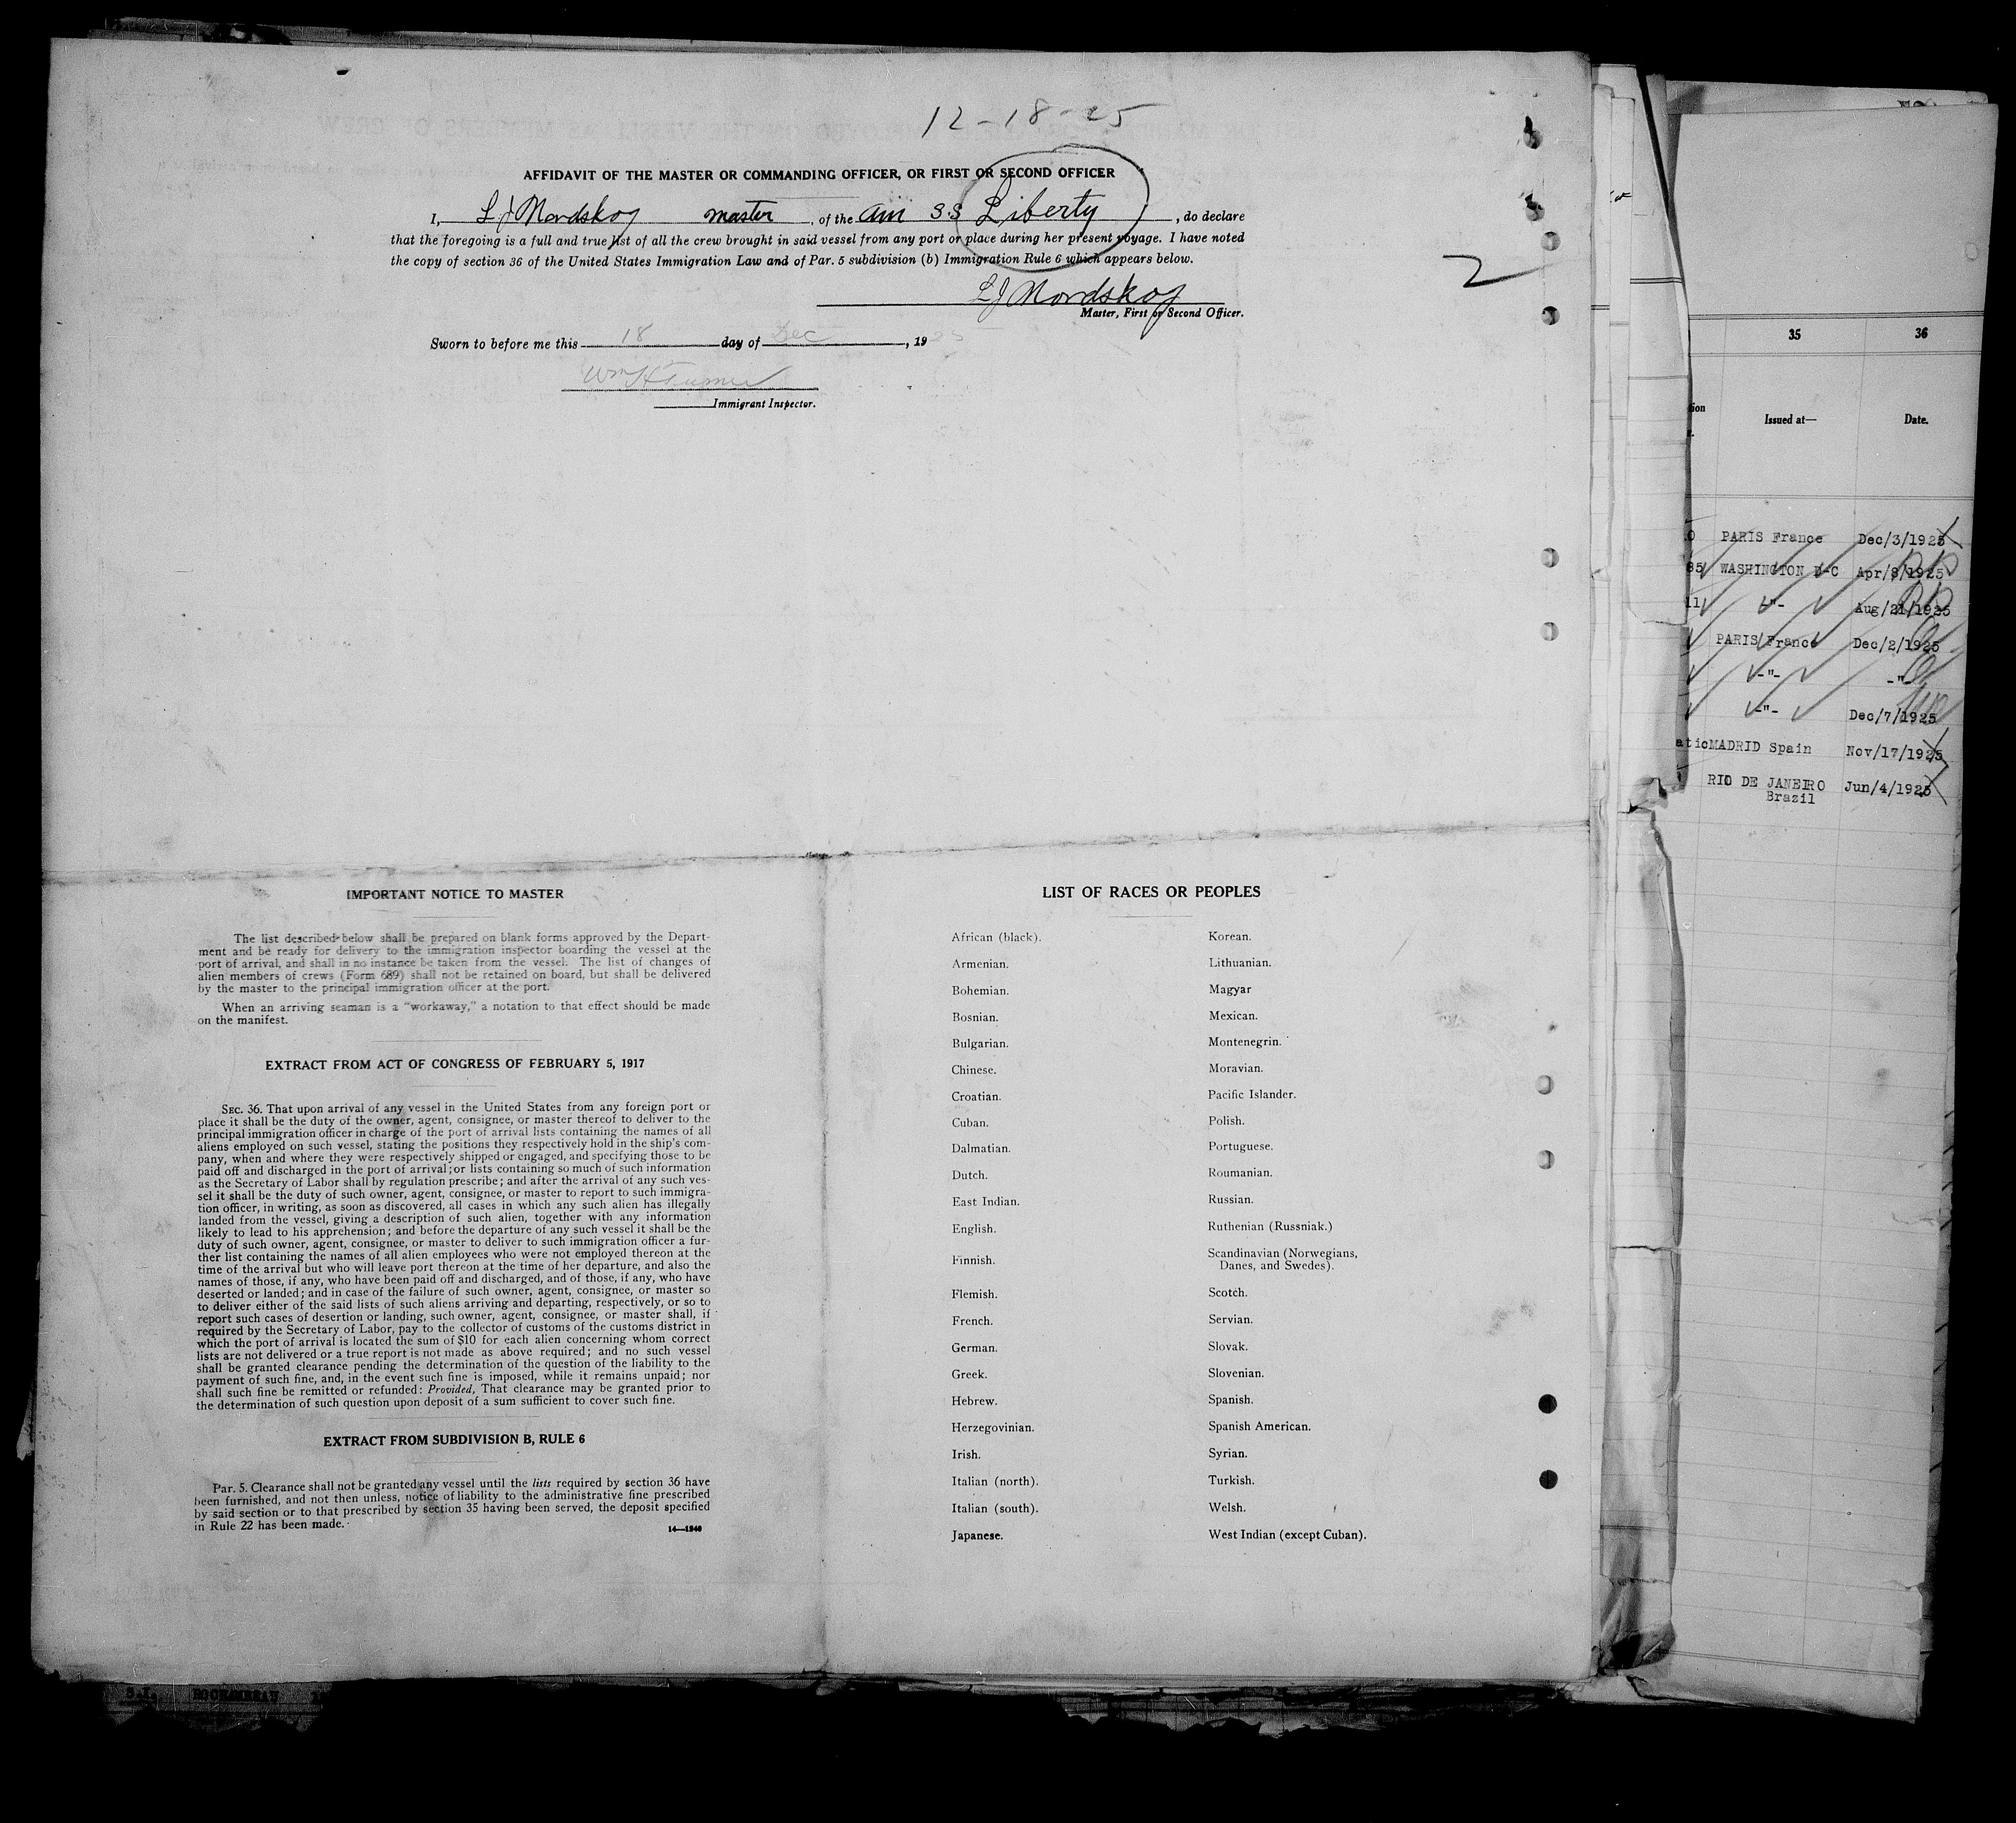 12-18-25
AFFIDAVIT OF THE MASTER OR COMMANDING OFFICER, OR FIRST OR SECOND OFFICER
I, L J Nordskog master, of the Am S.S Liberty, do declare
that the foregoing is a full and true list of all the crew brought in said vessel from any port or place during her present voyage. I have noted
the copy of section 36 of the United States Immigration Law and of Par. 5 subdivision (b) Immigration Rule 6 which appears below.
2
L J Nordskog
Master, First or Second Officer.
Sworn to before me this 18 day of Dec, 1925
Wm H Turner
Immigrant Inspector.
IMPORTANT NOTICE TO MASTER
The list described below shall be prepared on blank forms approved by the Depart-
ment and be ready for delivery to the immigration inspector boarding the vessel at the
port of arrival, and shall in no instance be taken from the vessel. The list of changes of
alien members of crews (Form 689) shall not be retained on board, but shall be delivered
by the master to the principal immigration officer at the port.
When an arriving seaman is a "workaway," a notation to that effect should be made
on the manifest.
EXTRACT FROM ACT OF CONGRESS OF FEBRUARY 5, 1917
SEC. 36. That upon arrival of any vessel in the United States from any foreign port or
place it shall be the duty of the owner, agent, consignee, or master thereof to deliver to the
principal immigration officer in charge of the port of arrival lists containing the names of all
aliens employed on such vessel, stating the positions they respectively hold in the ship's com-
pany, when and where they were respectively shipped or engaged, and specifying those to be
paid off and discharged in the port of arrival; or lists containing so much of such information
as the Secretary of Labor shall by regulation prescribe; and after the arrival of any such ves-
sel it shall be the duty of such owner, agent, consignee, or master to report to such immigra-
tion officer, in writing, as soon as discovered, all cases in which any such alien has illegally
landed from the vessel, giving a description of such alien, together with any information
likely to lead to his apprehension; and before the departure of any such vessel it shall be the
duty of such owner, agent, consignee, or master to deliver to such immigration officer a fur-
ther list containing the names of all alien employees who were not employed thereon at the
time of the arrival but who will leave port thereon at the time of her departure, and also the
names of those, if any, who have been paid off and discharged, and of those, if any, who have
deserted or landed; and in case of the failure of such owner, agent, consignee, or master so
to deliver either of the said lists of such aliens arriving and departing, respectively, or so to
report such cases of desertion or landing, such owner, agent, consignee, or master shall, if
required by the Secretary of Labor, pay to the collector of customs of the customs district in
which the port of arrival is located the sum of $10 for each alien concerning whom correct
lists are not delivered or a true report is not made as above required; and no such vessel
shall be granted clearance pending the determination of the question of the liability to the
payment of such fine, and, in the event such fine is imposed, while it remains unpaid; nor
shall such fine be remitted or refunded: Provided, That clearance may be granted prior to
the determination of such question upon deposit of a sum sufficient to cover such fine.
EXTRACT FROM SUBDIVISION B, RULE 6
Par. 5. Clearance shall not be granted any vessel until the lists required by section 36 have
been furnished, and not then unless, notice of liability to the administrative fine prescribed
by said section or to that prescribed by section 35 having been served, the deposit specified
in Rule 22 has been made.
14—1940
LIST OF RACES OR PEOPLES
African (black).
Armenian.
Bohemian.
Bosnian.
Bulgarian.
Chinese.
Croatian.
Cuban.
Dalmatian.
Dutch.
East Indian.
English.
Finnish.
Flemish.
French.
German.
Greek.
Hebrew.
Herzegovinian.
Irish.
Italian (north).
Italian (south).
Japanese.
Korean.
Lithuanian.
Magyar
Mexican.
Montenegrin.
Moravian.
Pacific Islander.
Polish.
Portuguese.
Roumanian.
Russian.
Ruthenian (Russniak.)
Scandinavian (Norwegians,
Danes, and Swedes).
Scotch.
Servian.
Slovak.
Slovenian.
Spanish.
Spanish American.
Syrian.
Turkish.
Welsh.
West Indian (except Cuban).
35 36
Issued at— Date.
PARIS France Dec/3/1925
85 WASHINGTON D-C Apr/8/1925
11 -"- Aug/21/1925
PARIS France Dec/2/1925
-"- -"-
-"- Dec/7/1925
atic MADRID Spain Nov/17/1925
RIO DE JANEIRO Jun/4/1925
Brazil